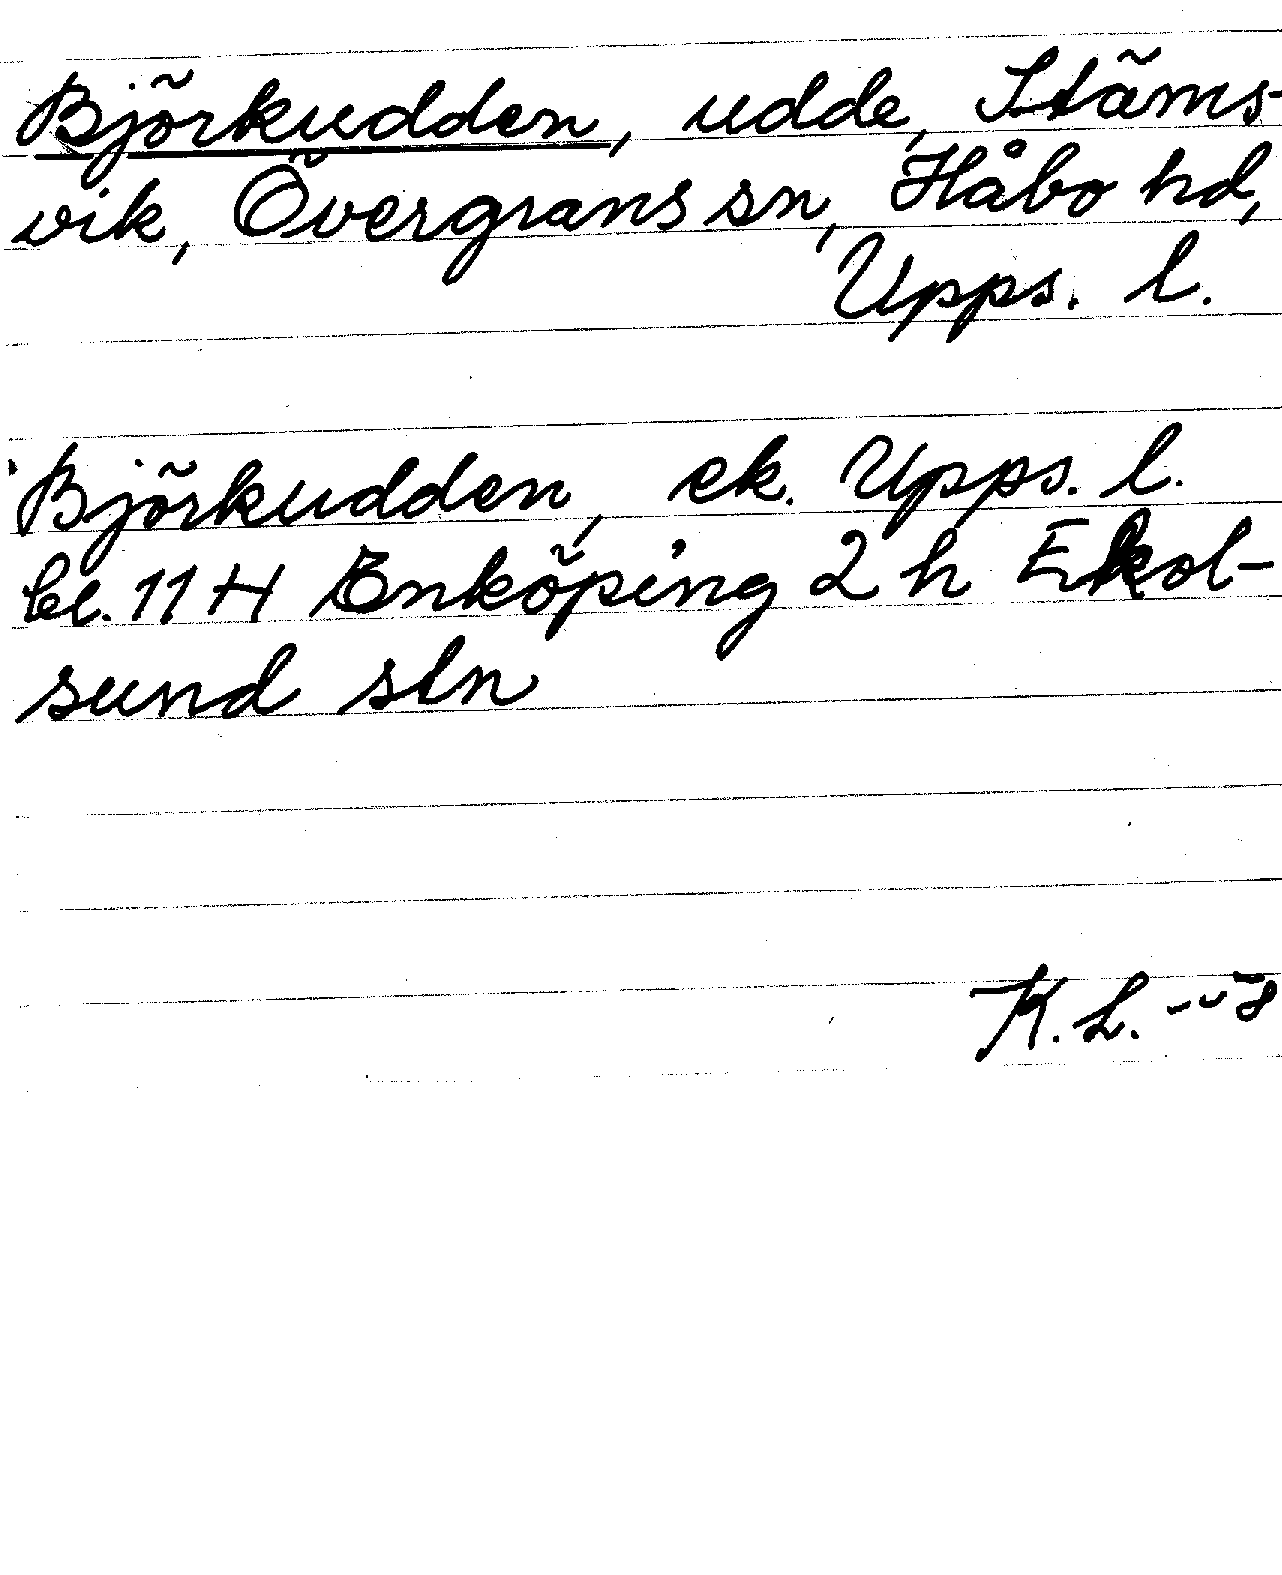 Björkudden, udde, Stäms-
vik, Övergrans sn, Håbo hd,
Upps. l.
Björkudden, ek. Upps. l.
bl. 11 H Enköping 2 h Ekol-
sund sln
K. L.